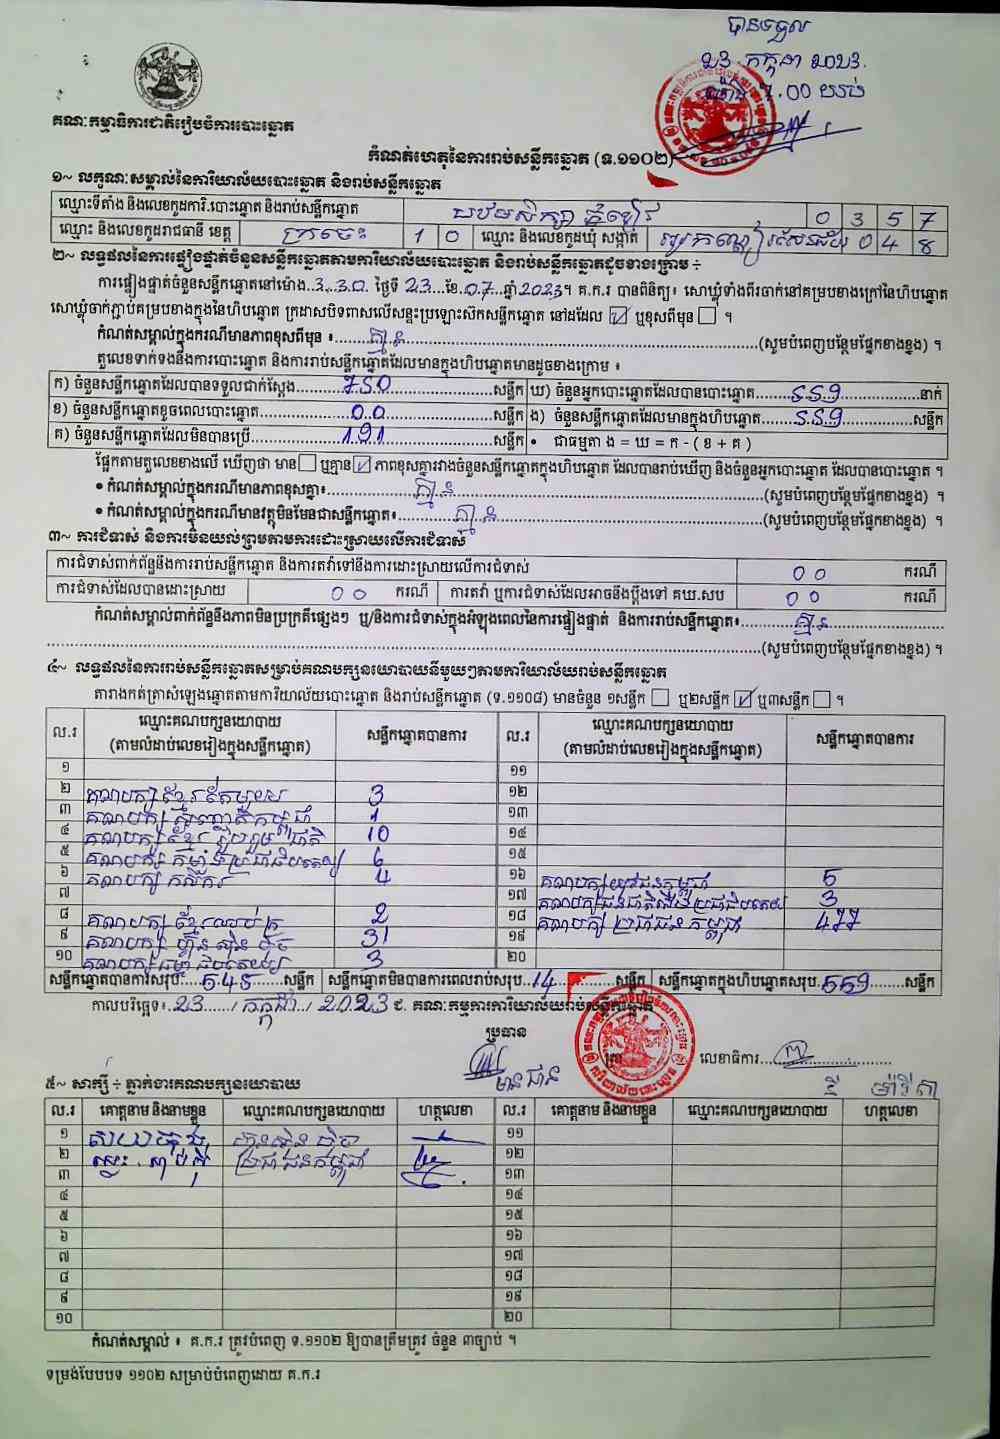 បានទទួល
23 កក្កដា 2023.
ម៉ោង 7.00 យប់
គណៈកម្មាធិការជាតិរៀបចំការបោះឆ្នោត
កំណត់ហេតុនៃការរាប់សន្លឹកឆ្នោត (ទ.១១០២)
១~ លក្ខណៈសម្គាល់នៃការិយាល័យបោះឆ្នោត និងរាប់សន្លឹកឆ្នោត
ឈ្មោះទីតាំង និងលេខកូដការិ.បោះឆ្នោត និងរាប់សន្លឹកឆ្នោត បឋមសិក្សា 0 3 5 7
ឈ្មោះ និងលេខកូដរាជធានី ខេត្ត ក្រចេះ 1 0 ឈ្មោះ និងលេខកូដឃុំ សង្កាត់ 0 4 8
២~ លទ្ធផលនៃការផ្ទៀងផ្ទាត់ចំនួនសន្លឹកឆ្នោតតាមការិយាល័យបោះឆ្នោត និងរាប់សន្លឹកឆ្នោតដូចខាងក្រោម ៖
ការផ្ទៀងផ្ទាត់ចំនួនសន្លឹកឆ្នោតនៅម៉ោង..3..30. ថ្ងៃទី 23...ខែ.07..ឆ្នាំ 2023។ គ.ក.រ បានពិនិត្យ៖ សោឃ្លុំទាំងពីរចាក់នៅគម្របខាងក្រៅនៃហិបឆ្នោត
សោឃ្លុំចាក់ភ្ជាប់គម្របខាងក្នុងនៃហិបឆ្នោត ក្រដាសបិទពាសលើសន្ទះប្រឡោះសិកសន្លឹកឆ្នោត នៅដដែល ☑ ឬខុសពីមុន ☐ ។
កំណត់សម្គាល់ក្នុងករណីមានភាពខុសពីមុន ៖ គ្មាន (សូមបំពេញបន្ថែមផ្នែកខាងខ្នង) ។
តួលេខទាក់ទងនឹងការបោះឆ្នោត និងការរាប់សន្លឹកឆ្នោតដែលមានក្នុងហិបឆ្នោតមានដូចខាងក្រោម ៖
ក) ចំនួនសន្លឹកឆ្នោតដែលបានទទួលជាក់ស្តែង 750 សន្លឹក ឃ) ចំនួនអ្នកបោះឆ្នោតដែលបានបោះឆ្នោត 559 នាក់
ខ) ចំនួនសន្លឹកឆ្នោតខូចពេលបោះឆ្នោត 00 សន្លឹក ង) ចំនួនសន្លឹកឆ្នោតដែលមានក្នុងហិបឆ្នោត 559 សន្លឹក
គ) ចំនួនសន្លឹកឆ្នោតដែលមិនបានប្រើ 191 សន្លឹក • ជាធម្មតា ង = ឃ = ក - ( ខ + គ )
ផ្អែកតាមតួលេខខាងលើ ឃើញថា មាន ☐ ឬគ្មាន ☑ ភាពខុសគ្នារវាងចំនួនសន្លឹកឆ្នោតក្នុងហិបឆ្នោត ដែលបានរាប់ឃើញ និងចំនួនអ្នកបោះឆ្នោត ដែលបានបោះឆ្នោត ។
• កំណត់សម្គាល់ក្នុងករណីមានភាពខុសគ្នា៖ គ្មាន (សូមបំពេញបន្ថែមផ្នែកខាងខ្នង) ។
• កំណត់សម្គាល់ក្នុងករណីមានវត្ថុមិនមែនជាសន្លឹកឆ្នោត៖ គ្មាន (សូមបំពេញបន្ថែមផ្នែកខាងខ្នង) ។
៣~ ការជំទាស់ និងការមិនយល់ព្រមតាមការដោះស្រាយលើការជំទាស់
ការជំទាស់ពាក់ព័ន្ធនឹងការរាប់សន្លឹកឆ្នោត និងការតវ៉ាទៅនឹងការដោះស្រាយលើការជំទាស់ 00 ករណី
ការជំទាស់ដែលបានដោះស្រាយ 00 ករណី ការតវ៉ា ឬការជំទាស់ដែលអាចនឹងប្តឹងទៅ គឃ.សប 00 ករណី
កំណត់សម្គាល់ពាក់ព័ន្ធនឹងភាពមិនប្រក្រតីផ្សេងៗ ឬ/និងការជំទាស់ក្នុងអំឡុងពេលនៃការផ្ទៀងផ្ទាត់ និងការរាប់សន្លឹកឆ្នោត៖ គ្មាន
(សូមបំពេញបន្ថែមផ្នែកខាងខ្នង) ។
៤~ លទ្ធផលនៃការរាប់សន្លឹកឆ្នោតសម្រាប់គណបក្សនយោបាយនីមួយៗតាមការិយាល័យរាប់សន្លឹកឆ្នោត
តារាងកត់ត្រាសំឡេងឆ្នោតតាមការិយាល័យបោះឆ្នោត និងរាប់សន្លឹកឆ្នោត (ទ.១១០៨) មានចំនួន ១សន្លឹក ☐ ឬ២សន្លឹក ☑ ឬ៣សន្លឹក ☐ ។
ល.រ ឈ្មោះគណបក្សនយោបាយ (តាមលំដាប់លេខរៀងក្នុងសន្លឹកឆ្នោត) សន្លឹកឆ្នោតបានការ ល.រ ឈ្មោះគណបក្សនយោបាយ (តាមលំដាប់លេខរៀងក្នុងសន្លឹកឆ្នោត) សន្លឹកឆ្នោតបានការ
១ ១១
២ គណបក្ស ខ្មែរតែមួយ 3 ១២
៣ គណបក្ស កម្ពុជា 1 ១៣
៤ គណបក្ស ខ្មែរ រួបរួមជាតិ 10 ១៤
៥ គណបក្ស កម្លាំងប្រជាធិបតេយ្យ 6 ១៥
៦ គណបក្ស កសិករ 4 ១៦ គណបក្សយុវជនកម្ពុជា 5
៧ ១៧ គណបក្សជនជាតិដើមប្រជាធិបតេយ្យ 3
៨ គណបក្ស ខ្មែរឈប់ក្រ 2 ១៨ គណបក្ស ប្រជាជន កម្ពុជា 477
៩ គណបក្ស ហ៊្វុនស៊ិនប៉ិច 31 ១៩
១០ គណបក្ស ធម្មាធិបតេយ្យ 3 ២០
សន្លឹកឆ្នោតបានការសរុប 545 សន្លឹក សន្លឹកឆ្នោតមិនបានការពេលរាប់សរុប 14 សន្លឹក សន្លឹកឆ្នោតក្នុងហិបឆ្នោតសរុប 559 សន្លឹក
កាលបរិច្ឆេទ៖ 23 / កក្កដា / 2023 ជ. គណៈកម្មការការិយាល័យរាប់សន្លឹកឆ្នោត
ប្រធាន
លេខាធិការ
មាន ផាន
ម៉ារីតា
៥~ សាក្សី ៖ ភ្នាក់ងារគណបក្សនយោបាយ
ល.រ គោត្តនាម និងនាមខ្លួន ឈ្មោះគណបក្សនយោបាយ ហត្ថលេខា ល.រ គោត្តនាម និងនាមខ្លួន ឈ្មោះគណបក្សនយោបាយ ហត្ថលេខា
១ ហ៊្វុនស៊ិនប៉ិច ១១
២ ប្រជាជនកម្ពុជា ១២
៣ ១៣
៤ ១៤
៥ ១៥
៦ ១៦
៧ ១៧
៨ ១៨
៩ ១៩
១០ ២០
កំណត់សម្គាល់ ៖ គ.ក.រ ត្រូវបំពេញ ទ.១១០២ ឱ្យបានត្រឹមត្រូវ ចំនួន ៣ច្បាប់ ។
ទម្រង់បែបបទ ១១០២ សម្រាប់បំពេញដោយ គ.ក.រ